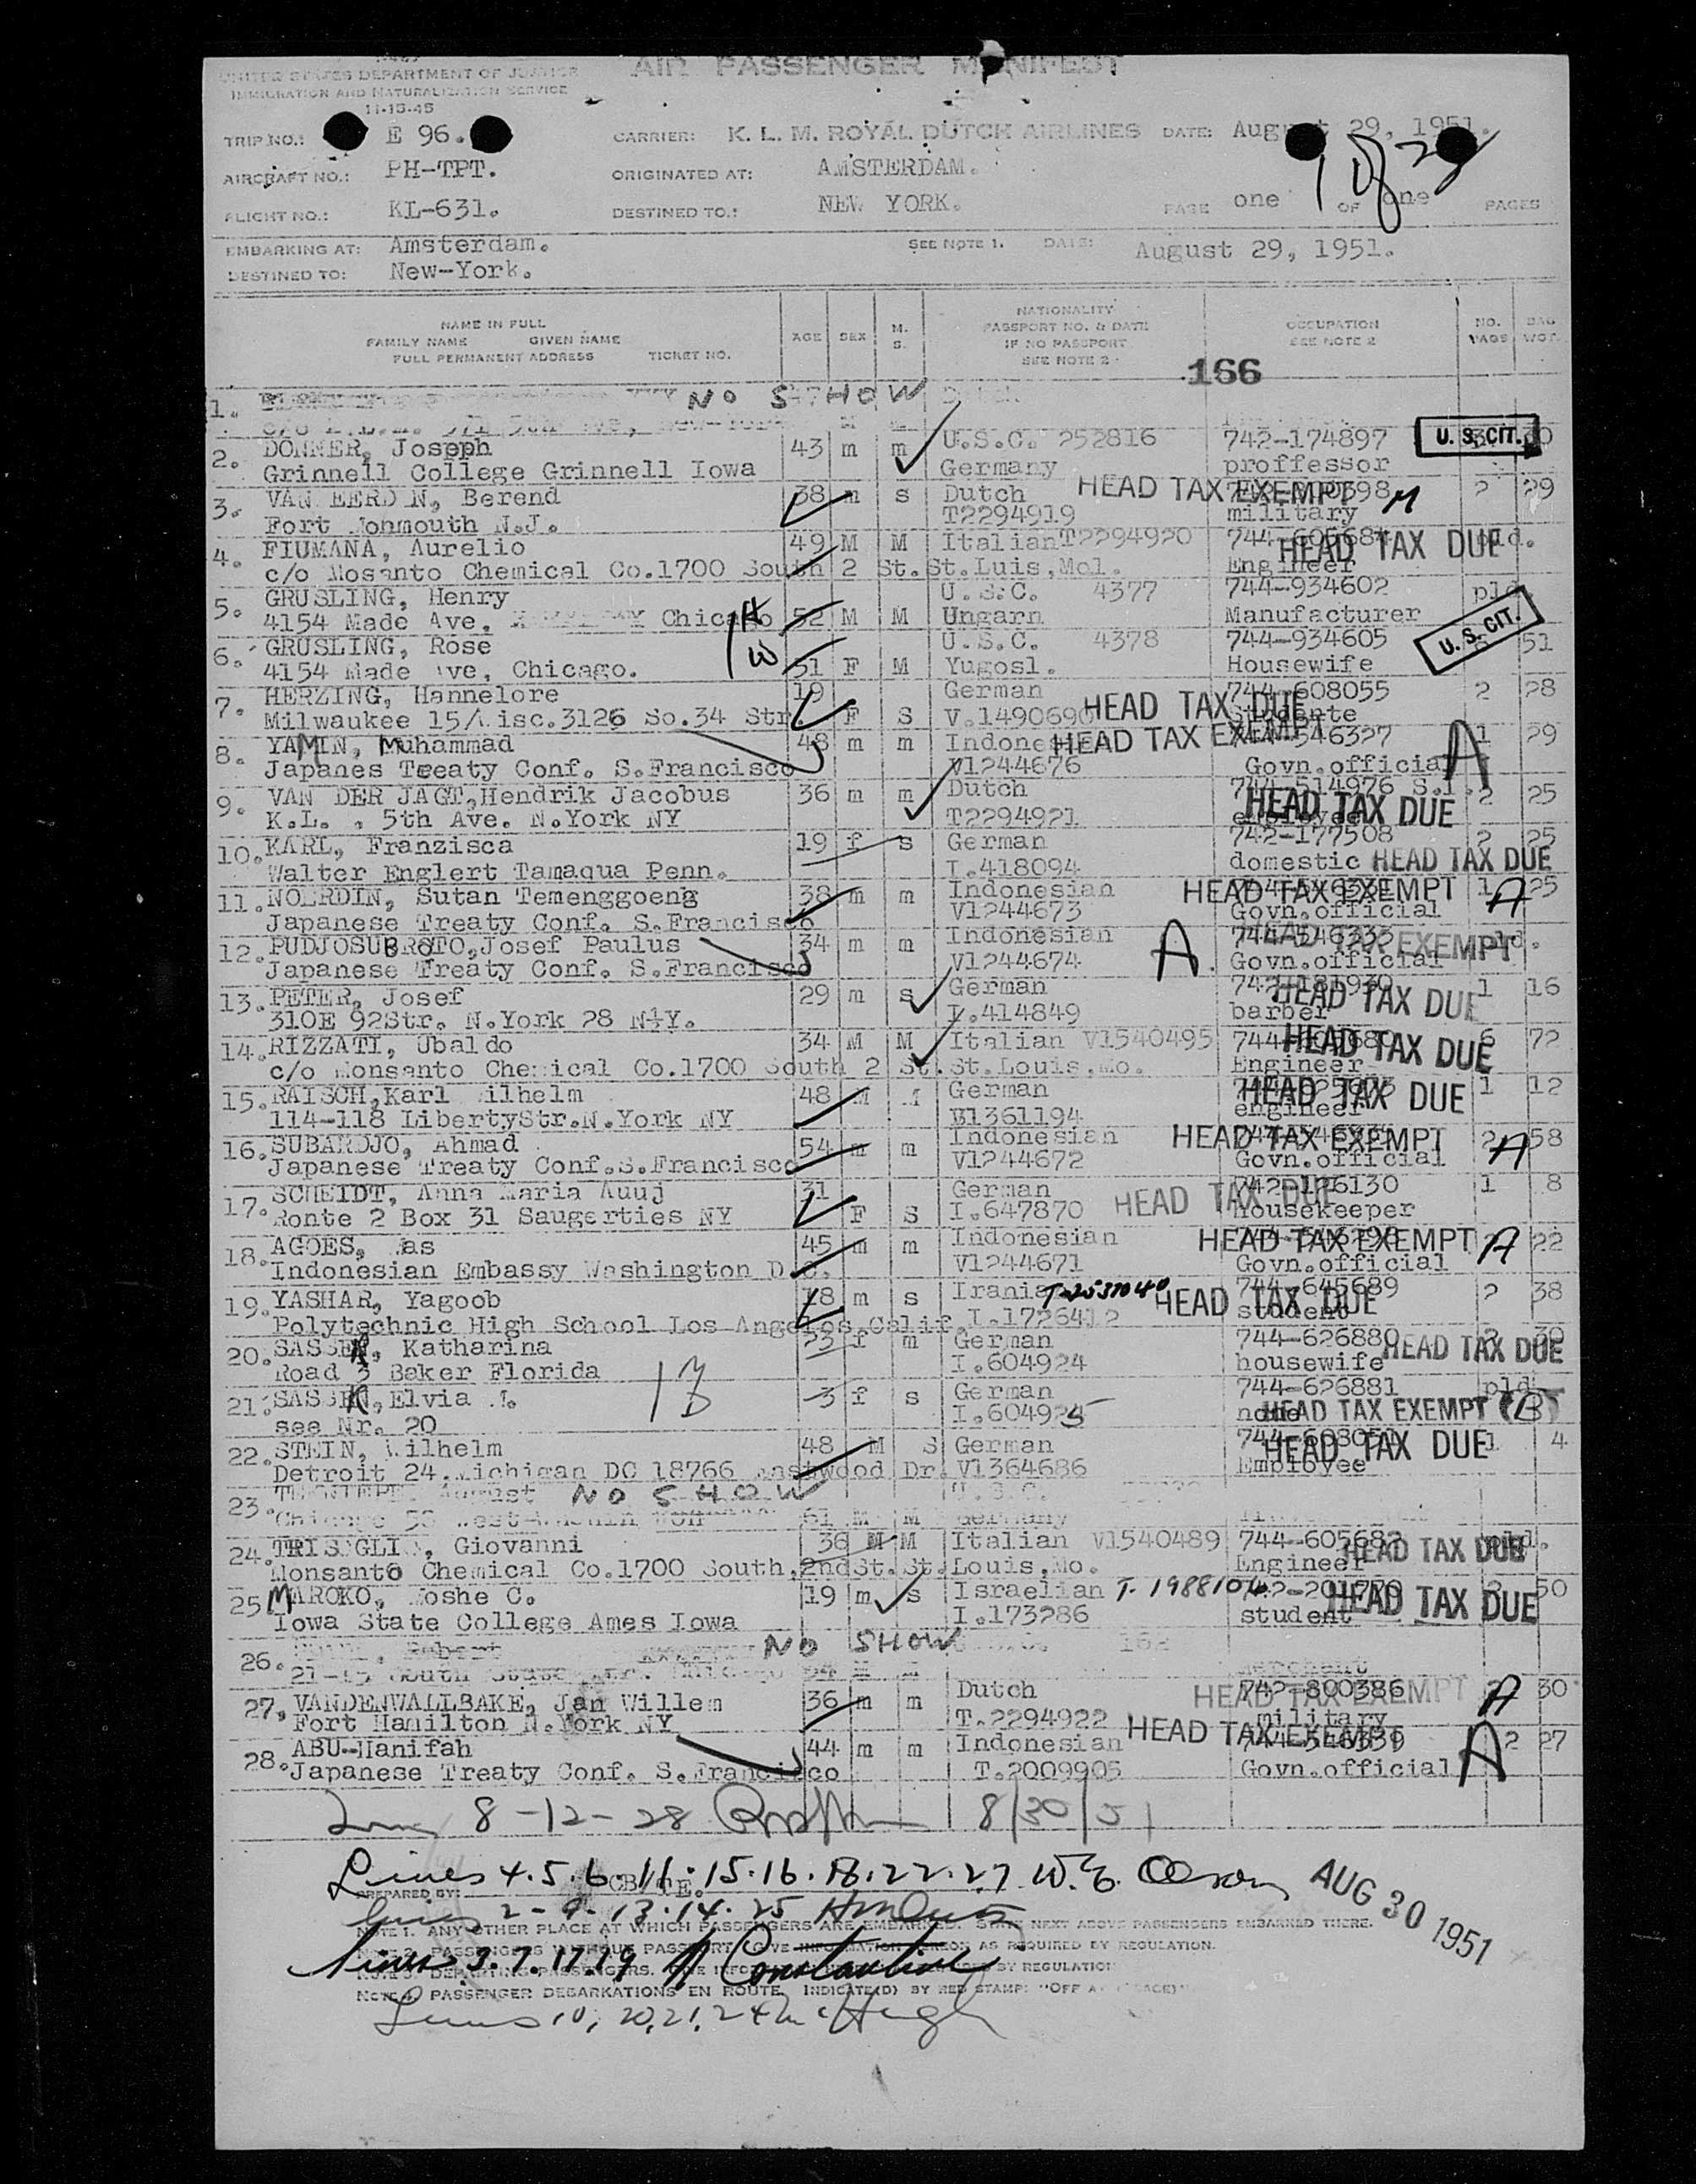 UNITED STATES DEPARTMENT OF JUSTICE
IMMIGRATION AND NATURALIZATION SERVICE
11-13-45
AIR PASSENGER MANIFEST
TRIP NO.: E 96. CARRIER: K. L. M. ROYAL DUTCH AIRLINES DATE: August 29, 1951.
AIRCRAFT NO.: PH-TPT. ORIGINATED AT: AMSTERDAM.
FLIGHT NO.: KL-631. DESTINED TO.: NEW YORK. PAGE one OF one PAGES
1 of 2
EMBARKING AT: Amsterdam. SEE NOTE 1. DATE: August 29, 1951.
DESTINED TO: New-York.
NAME IN FULL
FAMILY NAME GIVEN NAME
FULL PERMANENT ADDRESS TICKET NO.
AGE SEX M. S.
NATIONALITY
PASSPORT NO. & DATE
IF NO PASSPORT
SEE NOTE 2
OCCUPATION
SEE NOTE 2
NO. BAGS BAG WGT.
166
1. NO SHOW
2. DONNER, Joseph 43 m m U.S.C. 252816 742-174897 U. S. CIT.
Grinnell College Grinnell Iowa Germany proffessor
3. VAN EERD N, Berend 38 m s Dutch HEAD TAX EXEMPT M 2 29
Fort Monmouth N.J. T2294919 military
4. FIUMANA, Aurelio 49 M M Italian T2294920 744-605684 HEAD TAX DUE pld.
c/o Mosanto Chemical Co.1700 South 2 St.St.Luis,Mol. Engineer
5. GRUSLING, Henry 52 M M U.S.C. 4377 744-934602 pld
4154 Made Ave, Chicago Ungarn Manufacturer
6. GRUSLING, Rose 51 F M U.S.C. 4378 744-934605 U. S. CIT. 51
4154 Made ve, Chicago. Yugosl. Housewife
H
W
7. HERZING, Hannelore 19 F S German 744-608055 2 28
Milwaukee 15/Wisc.3126 So.34 Str. V.1490690 HEAD TAX DUE
8. YAMIN, Muhammad 48 m m HEAD TAX EXEMPT 744-546327 A 1 29
Japanes Treaty Conf. S.Francisco V1244676 Govn.official
9. VAN DER JAGT,Hendrik Jacobus 36 m m Dutch 744-514976 2 25
K.L. , 5th Ave. N.York NY T2294921 employee HEAD TAX DUE
10. KARL, Franzisca 19 f s German 742-177508 2 25
Walter Englert Tamaqua Penn. I.418094 domestic HEAD TAX DUE
11. NOERDIN, Sutan Temenggoeng 38 m m Indonesian HEAD TAX EXEMPT 1 A 25
Japanese Treaty Conf. S.Francisco V1244673 Govn.official
12. PUDJOSUBROTO,Josef Paulus 34 m m Indonesian A. HEAD TAX EXEMPT pld.
Japanese Treaty Conf. S.Francisco V1244674 Govn.official
13. PETER, Josef 29 m s German HEAD TAX DUE 1 16
310E 92Str. N.York 28 N.Y. I.414849 barber
14. RIZZATI, Ubaldo 34 M M Italian V1540495 HEAD TAX DUE 6 72
c/o Monsanto Chemical Co.1700 South 2 St.St.Louis,Mo. Engineer
15. RAISCH,Karl ilhelm 48 M M German HEAD TAX DUE 1 12
114-118 LibertyStr.N.York NY B1361194 engineer
16. SUBARDJO, Ahmad 54 m m Indonesian HEAD TAX EXEMPT 2 A 58
Japanese Treaty Conf.S.Francisco V1244672 Govn.official
17. SCHEIDT, Anna Maria Auuj 31 F S German 742-126130 1 8
Ronte 2 Box 31 Saugerties NY I.647870 HEAD TAX DUE housekeeper
18. AGOES, as 45 m m Indonesian HEAD TAX EXEMPT A 22
Indonesian Embassy Washington D.C. V1244671 Govn.official
19. YASHAR, Yagoob 18 m s 744-645689 2 38
Polytechnic High School Los Angelos,Calif. I.1726412 student HEAD TAX DUE
20. SASSER, Katharina 23 f m German 744-626880 2 30
Road 3 Baker Florida I.604924 housewife HEAD TAX DUE
21. Elvia 3 f s German 744-626881 pld
see Nr. 20 I.604925 none HEAD TAX EXEMPT (B)
22. STEIN, Wilhelm 48 M S German HEAD TAX DUE 1 4
Detroit 24.Michigan DC 18766 Eastwood Dr. V1364686 Employee
23. August NO SHOW U.S.C.
Chicago 61 M M Germany
24. Giovanni 36 M M Italian V1540489 744-605682 HEAD TAX DUE pld.
Monsanto Chemical Co.1700 South,2ndSt.St.Louis,Mo. Engineer
25 MAROKO, Moshe C. 19 m s Israelian T-1988104 HEAD TAX DUE 50
Iowa State College Ames Iowa I.173286 student
26. Robert NO SHOW
27, VANDENWALLBAKE, Jan Willem 36 m m Dutch 742-800386 HEAD TAX EXEMPT A 30
Fort Hamilton N.York NY T.2294922 military
28. ABU-Hanifah 44 m m Indonesian HEAD TAX EXEMPT A 2 27
Japanese Treaty Conf. S.Francisco T.2009905 Govn.official
8-12-28 8/30/51
Lines 4.5.6.11.15.16.18.22.27 W.E. Olson AUG 30 1951
PREPARED BY:
lines 2-9-13-14-25
NOTE 1. ANY OTHER PLACE AT WHICH PASSENGERS ARE EMBARKED. STATE NEXT ABOVE PASSENGERS EMBARKED THERE.
PASSENGERS WITHOUT PASSPORT GIVE INFORMATION HEREON AS REQUIRED BY REGULATION.
lines 3.7.17.19 Constantine
DEPARTING PASSENGERS. BY REGULATION
NOTE 4. PASSENGER DEBARKATIONS EN ROUTE INDICATE(D) BY RED STAMP: "OFF AT (PLACE)"
Lines 10, 20, 21, 24 McHugh